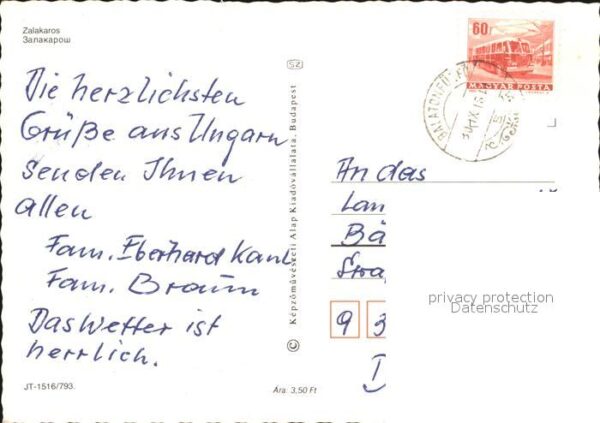 Zalakaros
Залакарош
Die herzlichsten
Grüße aus Ungarn
senden Ihnen
allen
Fam. Eberhard
Fam. Braun
Das Wetter ist
herrlich.
JT-1516/793.
SZ
© Képzőművészeti Alap Kiadóvállalata, Budapest
Ára: 3,50 Ft
60f
MAGYAR POSTA
An das
Lan
Bä
9 3
D
privacy protection
Datenschutz